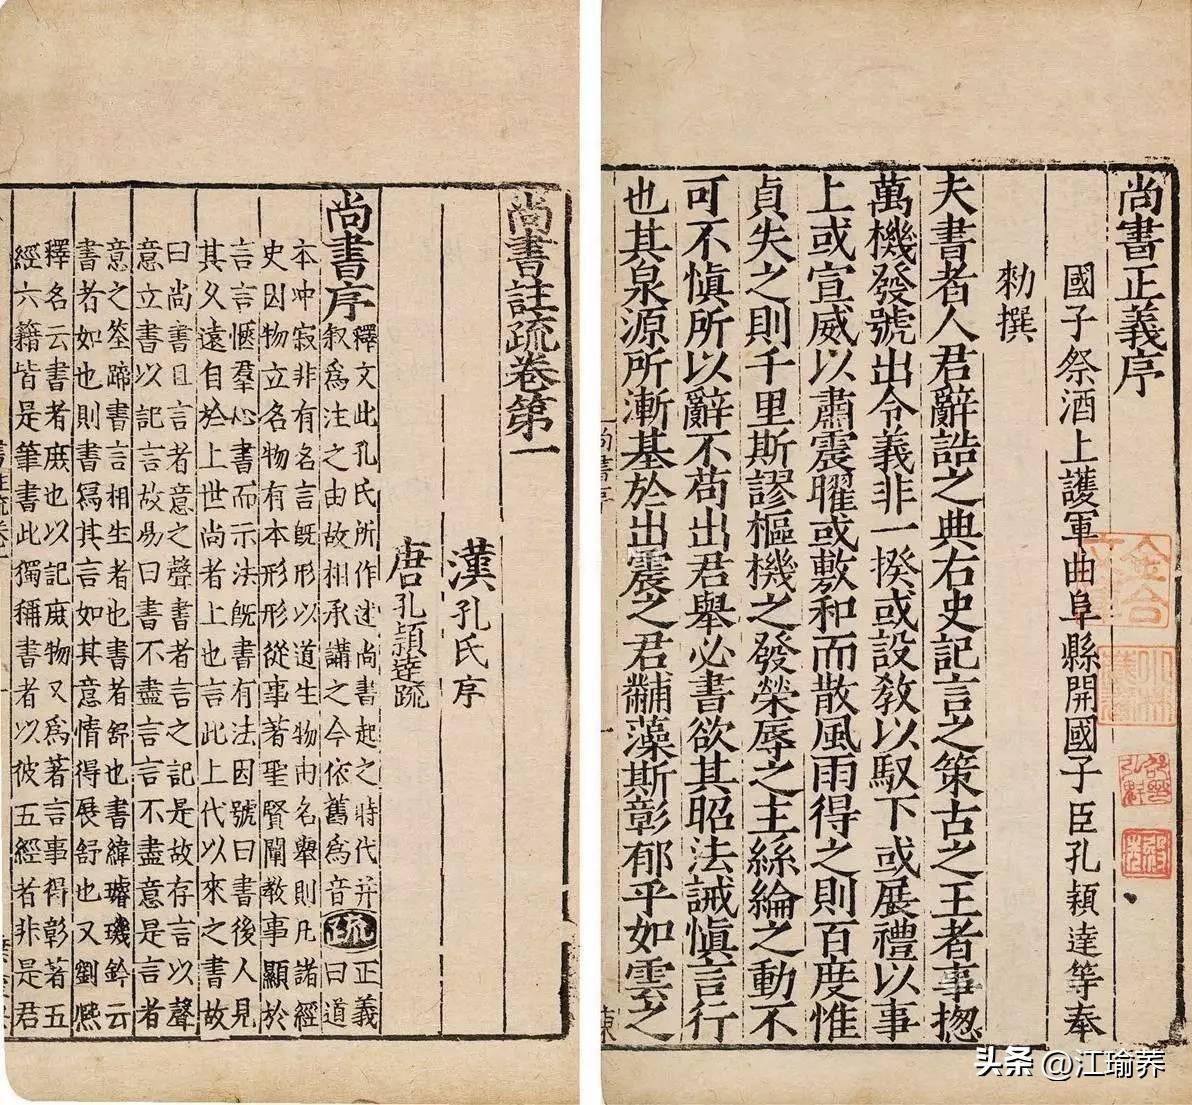 尚書正義序
國子祭酒上護軍曲阜縣開國子臣孔穎達等奉
勑撰
夫書者人君辭誥之典右史記言之策古之王者事揔
萬機發號出令義非一揆或設教以馭下或展禮以事
上或宣威以肅震曜或敷和而散風雨得之則百度惟
貞失之則千里斯謬樞機之發榮辱之主絲綸之動不
可不慎所以辭不苟出君舉必書欲其昭法誡慎言行
也其泉源所漸基於出震之君黼藻斯彰郁乎如雲之
尚書註疏卷第一
漢孔氏序
唐孔穎達疏
尚書序
釋文此孔氏所作述尚書起之時代并
叙為注之由故相承講之今依舊為音
疏
正義
曰道
本冲寂非有名言既形以道生物由名舉則凡諸經
史因物立名物有本形形從事著聖賢闡教事顯於
言言愜羣心書而示法既書有法因號曰書後人見
其久遠自於上世尚者上也言此上代以來之書故
曰尚書且言者意之聲書者言之記是故存言以聲
意立書以記言故易曰書不盡言言不盡意是言者
意之筌蹄書言相生者也書者舒也書緯璿璣鈐云
書者如也則書寫其言如其意情得展舒也又劉熙
釋名云書者庶也以記庶物又為著言事得彰著五
經六籍皆是筆書此獨稱書者以彼五經者非是君
头条 @江瑜荞